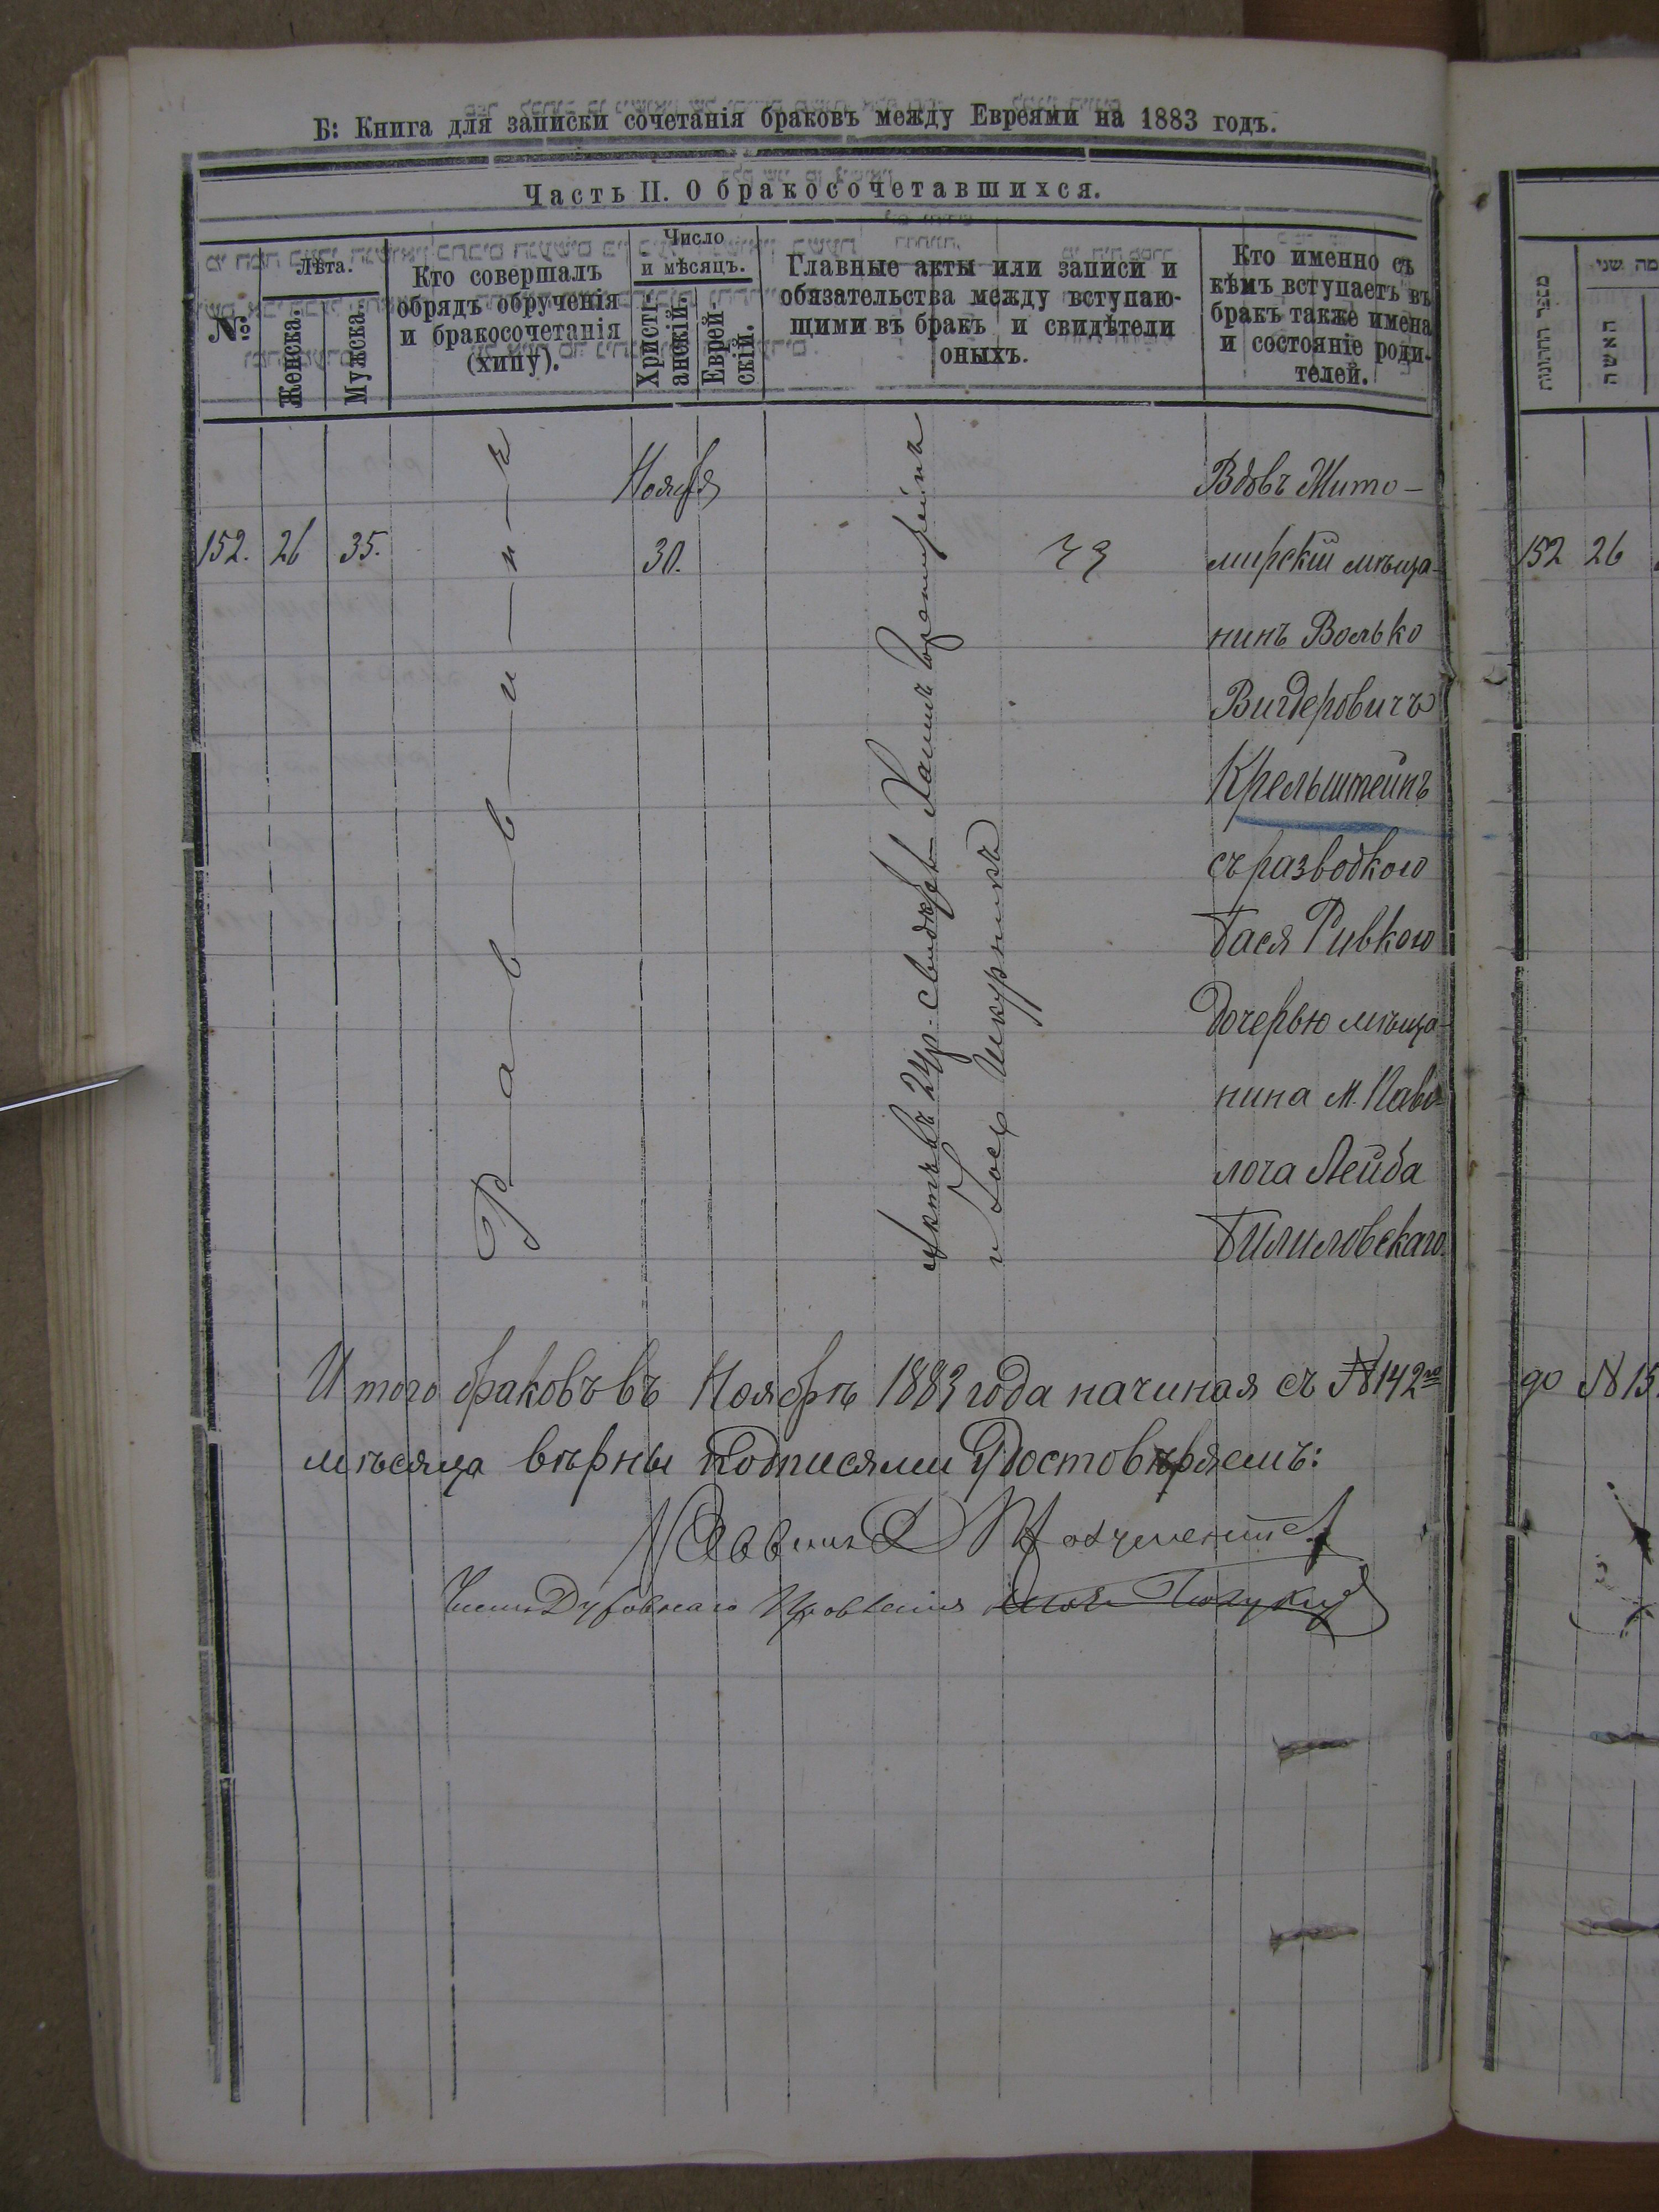 Б: Книга для записки сочетанія браковъ между Евреями на 1883 годъ.
Часть II. О бракосочетавшихся.
№
Лѣта.
Женска.
Мужска.
Кто совершалъ
обрядъ обрученія
и бракосочетанія
(хипу).
Число
и мѣсяцъ.
Христі-
анскій.
Еврей-
скій.
Главные акты или записи и
обязательства между вступаю-
щими въ бракъ и свидѣтели
оныхъ.
Кто именно съ
кѣмъ вступаетъ въ
бракъ также имена
и состояніе роди-
телей.
152.
26
35.
Раввинъ
Ноября
30.
Актъ въ 24 р. свидѣт. Хаимъ
и Іось Шкурникъ
Вдовъ Жито-
мирскій мѣща-
нинъ Волько
Вигдеровичъ
Крельштейнъ
съ разводкою
Бася Ривкою
Дочерью мѣща-
нина м. Паво-
лоча Лейба
Билиловскаго.
Итого браковъ въ Ноябрѣ 1883 года начиная съ №142го
мѣсяца вѣрны подписями Удостовѣряемъ:
Раввинъ
Членъ Духовнаго Правленія
מספר החתונות
מה שני
האשה
152 26
до № 15